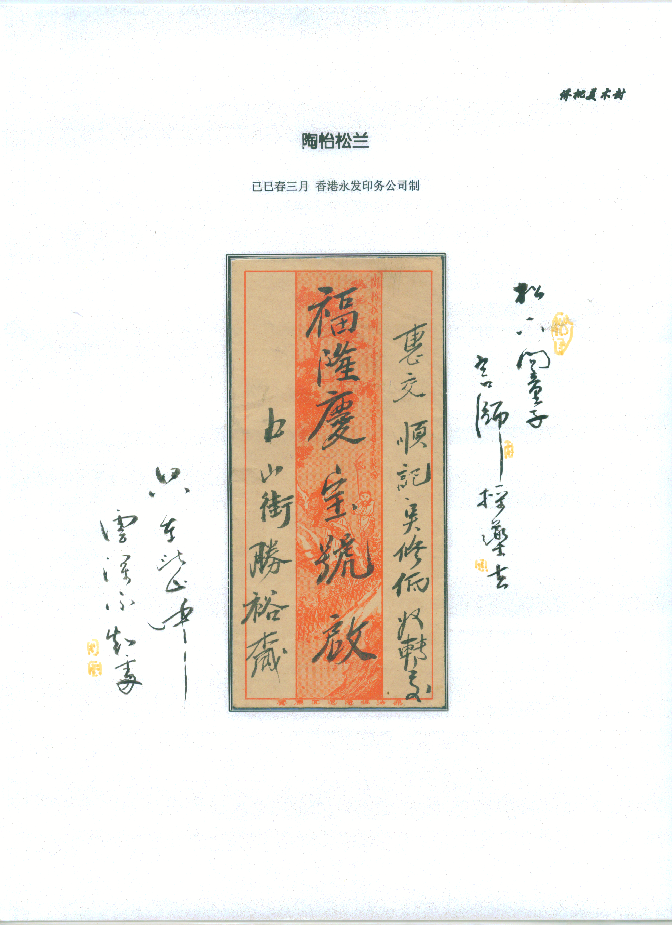 侨批美术封
陶怡松兰
己巳春三月 香港永发印务公司制
松下问童子
言師採藥去
只在此山中
雲深不知處
惠交 順記吳修
福隆慶宝號啟
山街勝裕